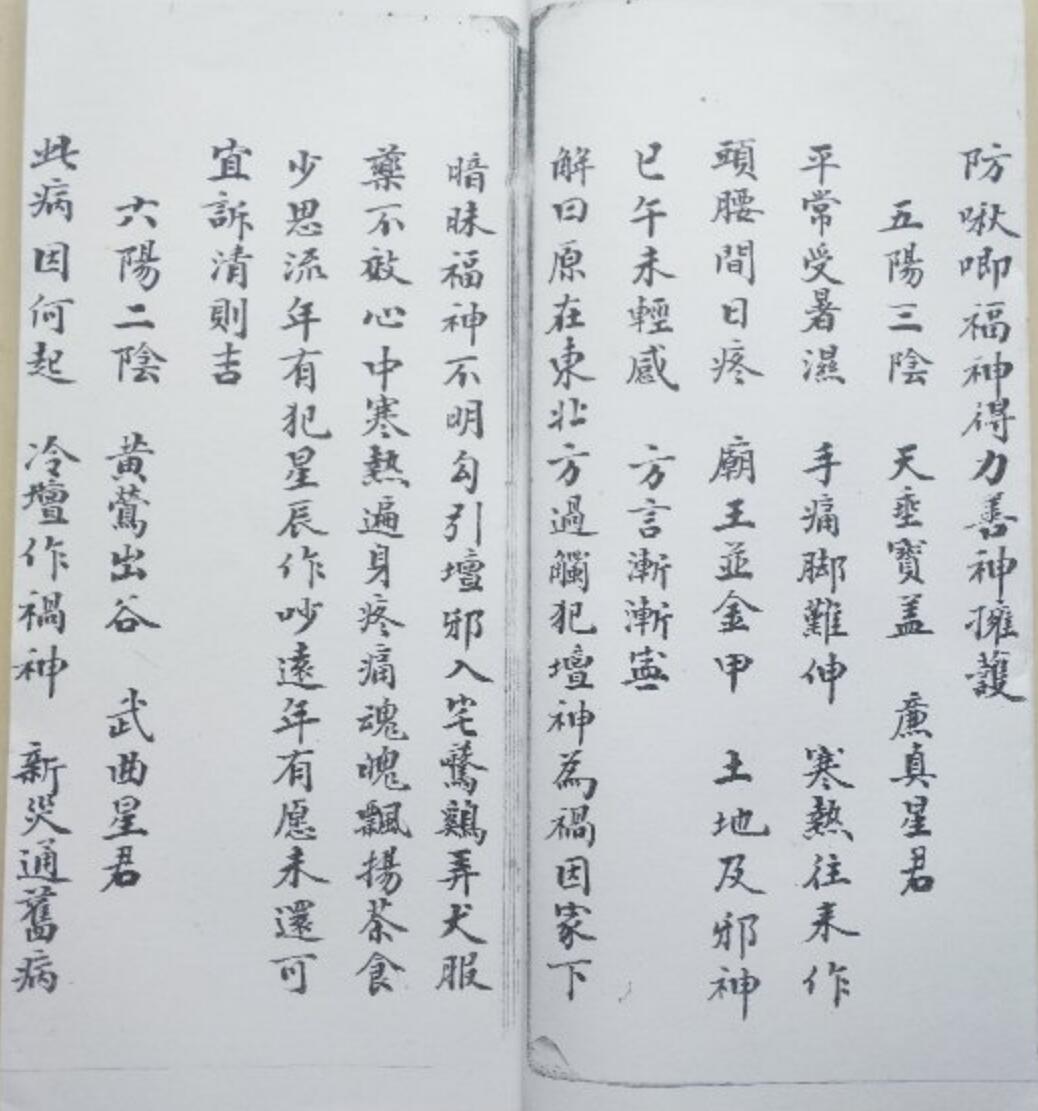 防啾唧福神得力善神擁護
五陽三陰 天垂寶盖 廉真星君
平常受暑濕 手痛脚難伸 寒熱往来作
頭腰間日疼 廟王並金甲 土地及邪神
巳午未輕感 方言漸漸
解曰原在東北方過觸犯壇神為禍因家下
暗昧福神不明勾引壇邪入宅驚鷄弄犬服
藥不效心中寒熱遍身疼痛魂魄飄揚茶食
少思流年有犯星辰作吵遠年有愿未還可
宜訴清則吉
六陽二陰 黄鶯出谷 武曲星君
此病因何起 冷壇作禍神 新災通舊病